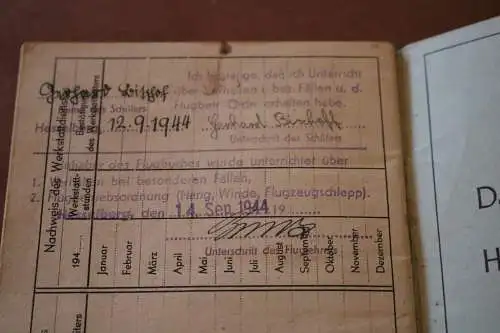 Ich bestätige, daß ich Unterricht
über Verhalten i. bes. Fällen u. d.
Flugbetr. Ordn. erhalten habe.
Gerhard Bischof
Name des Schülers
12.9.1944 Gerhard Bischoff
Unterschrift des Schülers
Inhaber des Flugbuches wurde unterrichtet über
1. Verhalten bei besonderen Fällen,
2. Flugbetriebsordnung (Hang, Winde, Flugzeugschlepp).
, den 14. Sep. 1944 19
Unterschrift des Fluglehrers
Nachweis des Werkstattdienstes
Bestätigung
des Werkstattleiters
Werkstatt-
stunden
194
Januar
Februar
März
April
Mai
Juni
Juli
August
September
Oktober
November
Dezember
D
H